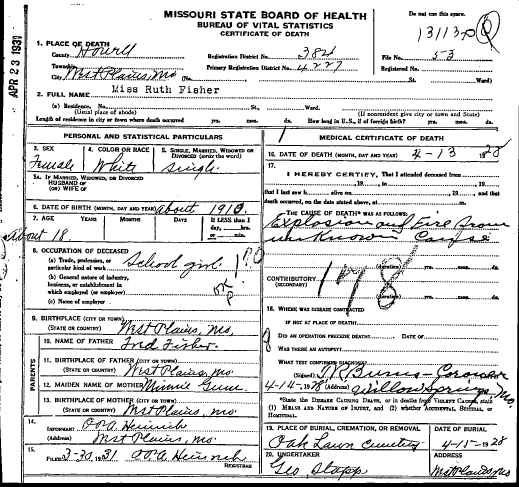 MISSOURI STATE BOARD OF HEALTH
BUREAU OF VITAL STATISTICS
CERTIFICATE OF DEATH
Do not use this space.
APR 23 1931
1. PLACE OF DEATH
County Howell
Registration District No. 384
File No. 53
Township
Primary Registration District No. 4227
Registered No.
City West Plains, Mo (No. St. Ward)
2. FULL NAME Miss Ruth Fisher
(a) Residence. No. St., Ward.
(Usual place of abode) (If nonresident give city or town and State)
Length of residence in city or town where death occurred yrs. mos. ds. How long in U.S., if of foreign birth? yrs. mos. ds.
PERSONAL AND STATISTICAL PARTICULARS
3. SEX
Female
4. COLOR OR RACE
White
5. SINGLE, MARRIED, WIDOWED OR DIVORCED (write the word)
Single
5A. IF MARRIED, WIDOWED, OR DIVORCED
HUSBAND OF
(OR) WIFE OF
6. DATE OF BIRTH (MONTH, DAY AND YEAR) about 1910.
7. AGE YEARS MONTHS DAYS If LESS than 1 day, hrs. or min.
About 18
8. OCCUPATION OF DECEASED
(a) Trade, profession, or particular kind of work School girl
(b) General nature of industry, business, or establishment in which employed (or employer)
(c) Name of employer
9. BIRTHPLACE (CITY OR TOWN)
(STATE OR COUNTRY) West Plains, Mo.
PARENTS
10. NAME OF FATHER Fred Fisher
11. BIRTHPLACE OF FATHER (CITY OR TOWN)
(STATE OR COUNTRY) West Plains, Mo.
12. MAIDEN NAME OF MOTHER Minnie Gunn
13. BIRTHPLACE OF MOTHER (CITY OR TOWN)
(STATE OR COUNTRY) West Plains, Mo
14.
INFORMANT Heinrich
(Address) West Plains, Mo
15.
FILED 3-30 1931 Heinrich
REGISTRAR
MEDICAL CERTIFICATE OF DEATH
16. DATE OF DEATH (MONTH, DAY AND YEAR) 4-13 1928
17.
I HEREBY CERTIFY, That I attended deceased from
, 19 , to , 19
that I last saw h alive on , 19 , and that
death occurred, on the date stated above, at m.
THE CAUSE OF DEATH* WAS AS FOLLOWS:
Explosion and Fire from
unknown Cause
178
(duration) yrs. mos. ds.
CONTRIBUTORY
(SECONDARY)
(duration) yrs. mos. ds.
18. WHERE WAS DISEASE CONTRACTED
IF NOT AT PLACE OF DEATH?
DID AN OPERATION PRECEDE DEATH? DATE OF
WAS THERE AN AUTOPSY?
WHAT TEST CONFIRMED DIAGNOSIS?
(Signed) Burns - Coroner
4-14-1928 (Address) Willow Springs, Mo.
*State the DISEASE CAUSING DEATH, or in deaths from VIOLENT CAUSES, state
(1) MEANS AND NATURE OF INJURY, and (2) whether ACCIDENTAL, SUICIDAL, or
HOMICIDAL.
19. PLACE OF BURIAL, CREMATION, OR REMOVAL
Oak Lawn Cemetery
DATE OF BURIAL
4-15-1928
20. UNDERTAKER
Geo. Stapp
ADDRESS
West Plains, Mo